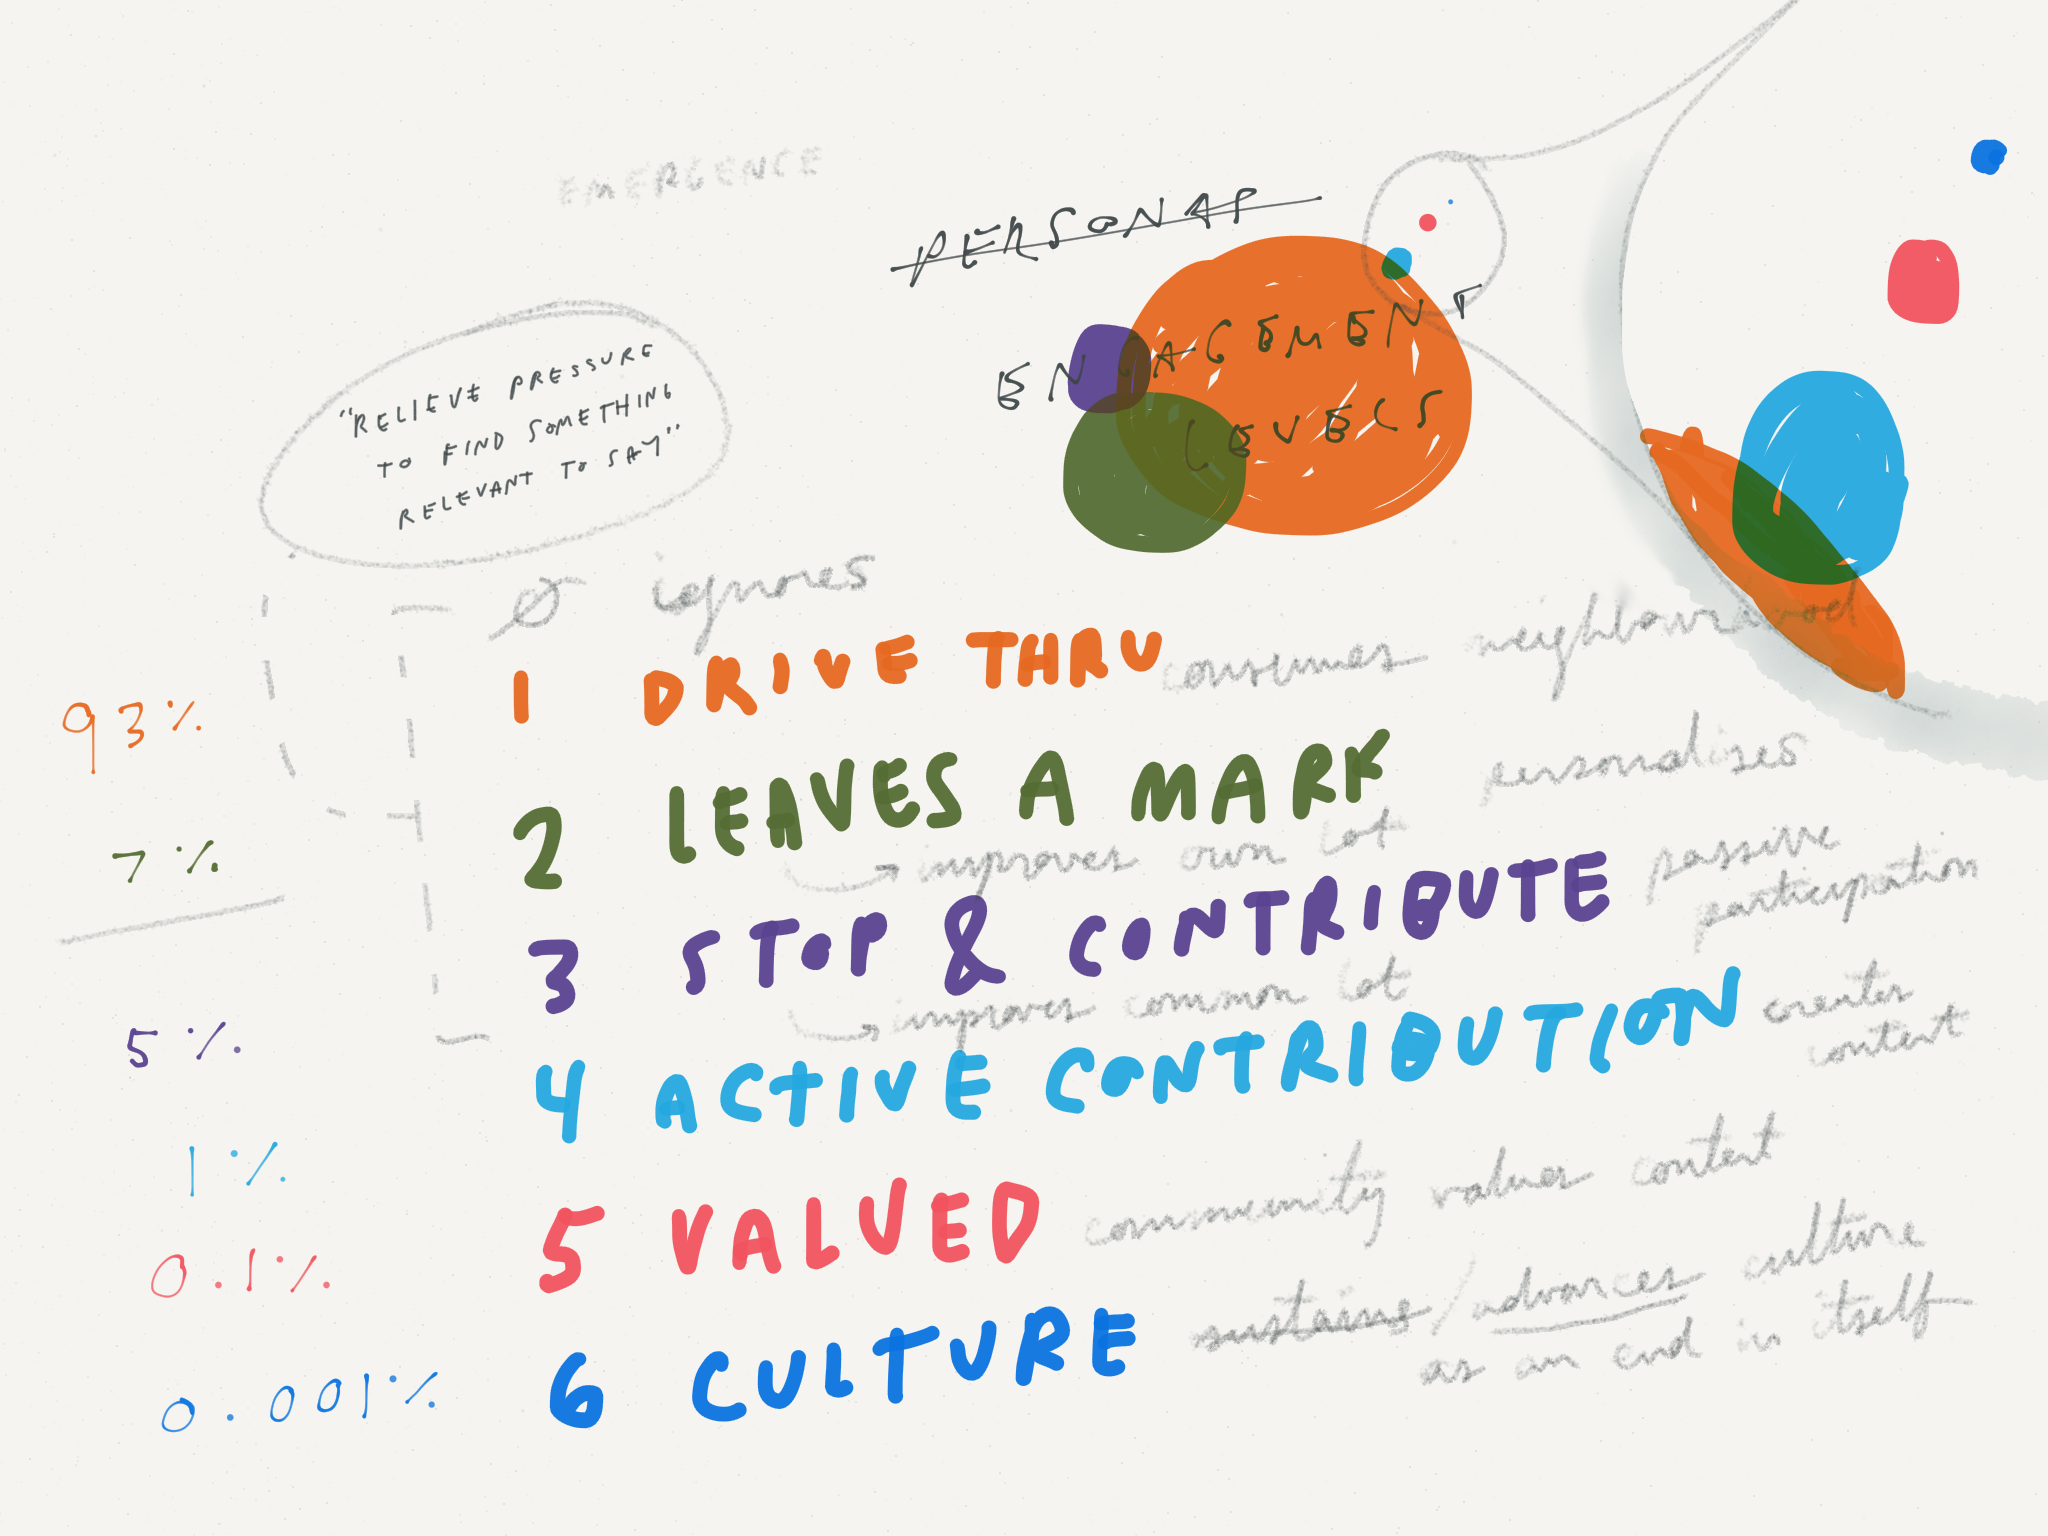 EMERGENCE
PERSONAS
ENGAGEMENT
LEVELS
"RELIEVE PRESSURE
TO FIND SOMETHING
RELEVANT TO SAY"
Ø ignores
93% 1 DRIVE THRU consumes neighbourhood
7% 2 LEAVES A MARK personalises
→ improves own lot
5% 3 STOP & CONTRIBUTE passive participation
→ improves common lot
1% 4 ACTIVE CONTRIBUTION creates content
0.1% 5 VALUED community values content
0.001% 6 CULTURE sustains / advances culture
as an end in itself